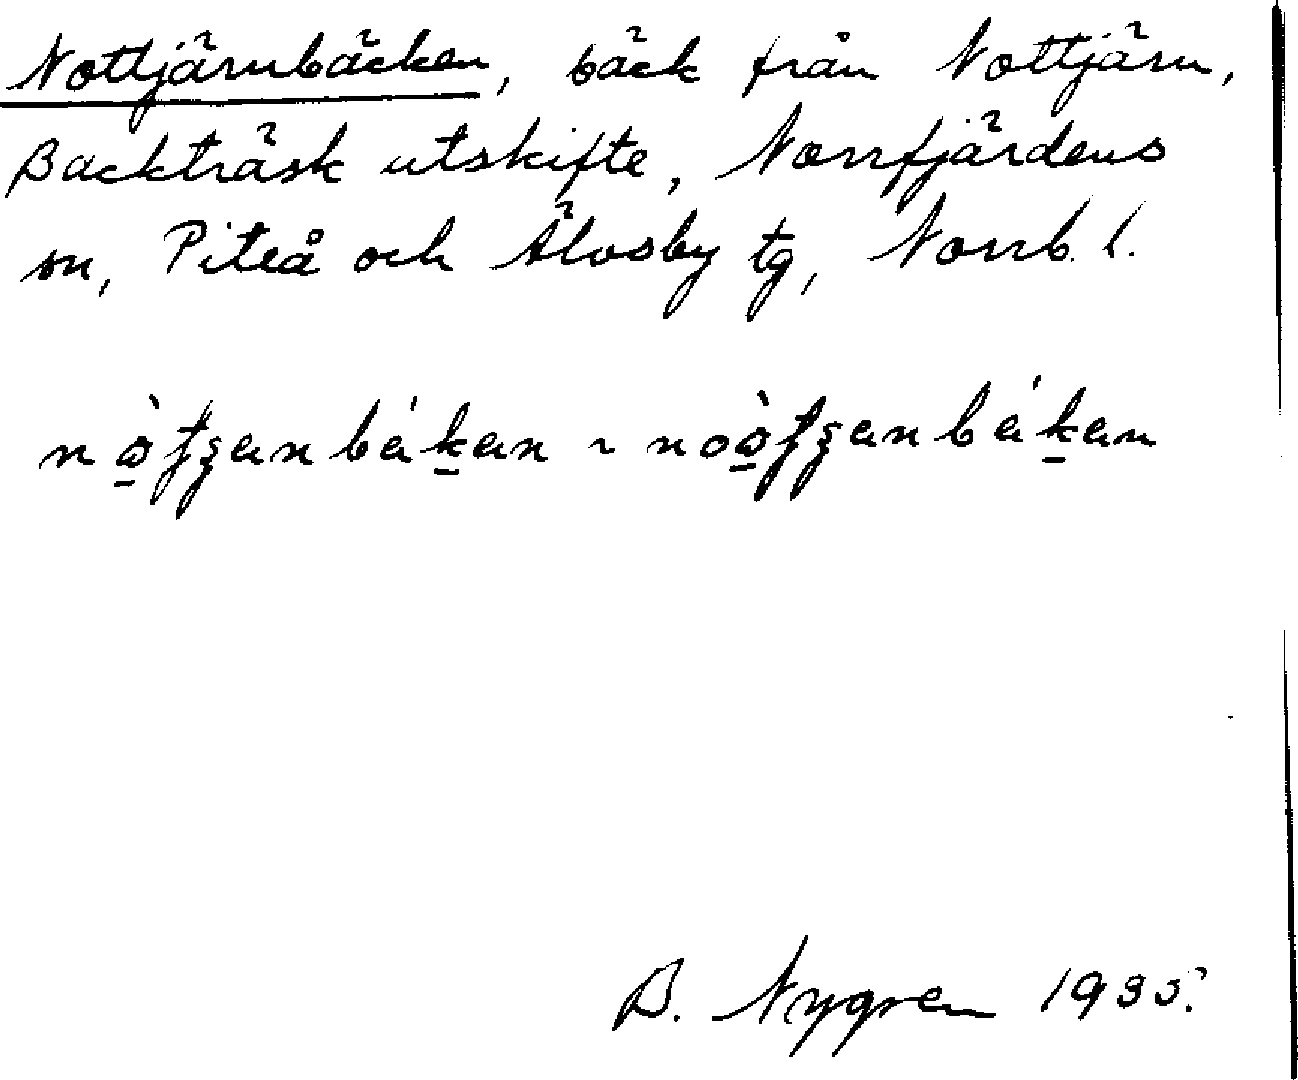 Nottjärnbäcken, bäck från Nottjärn,
Backträsk utskifte, Norrfjärdens
sn, Piteå och Älvsby tg, Norrb. l.
B. Nygren 1935.